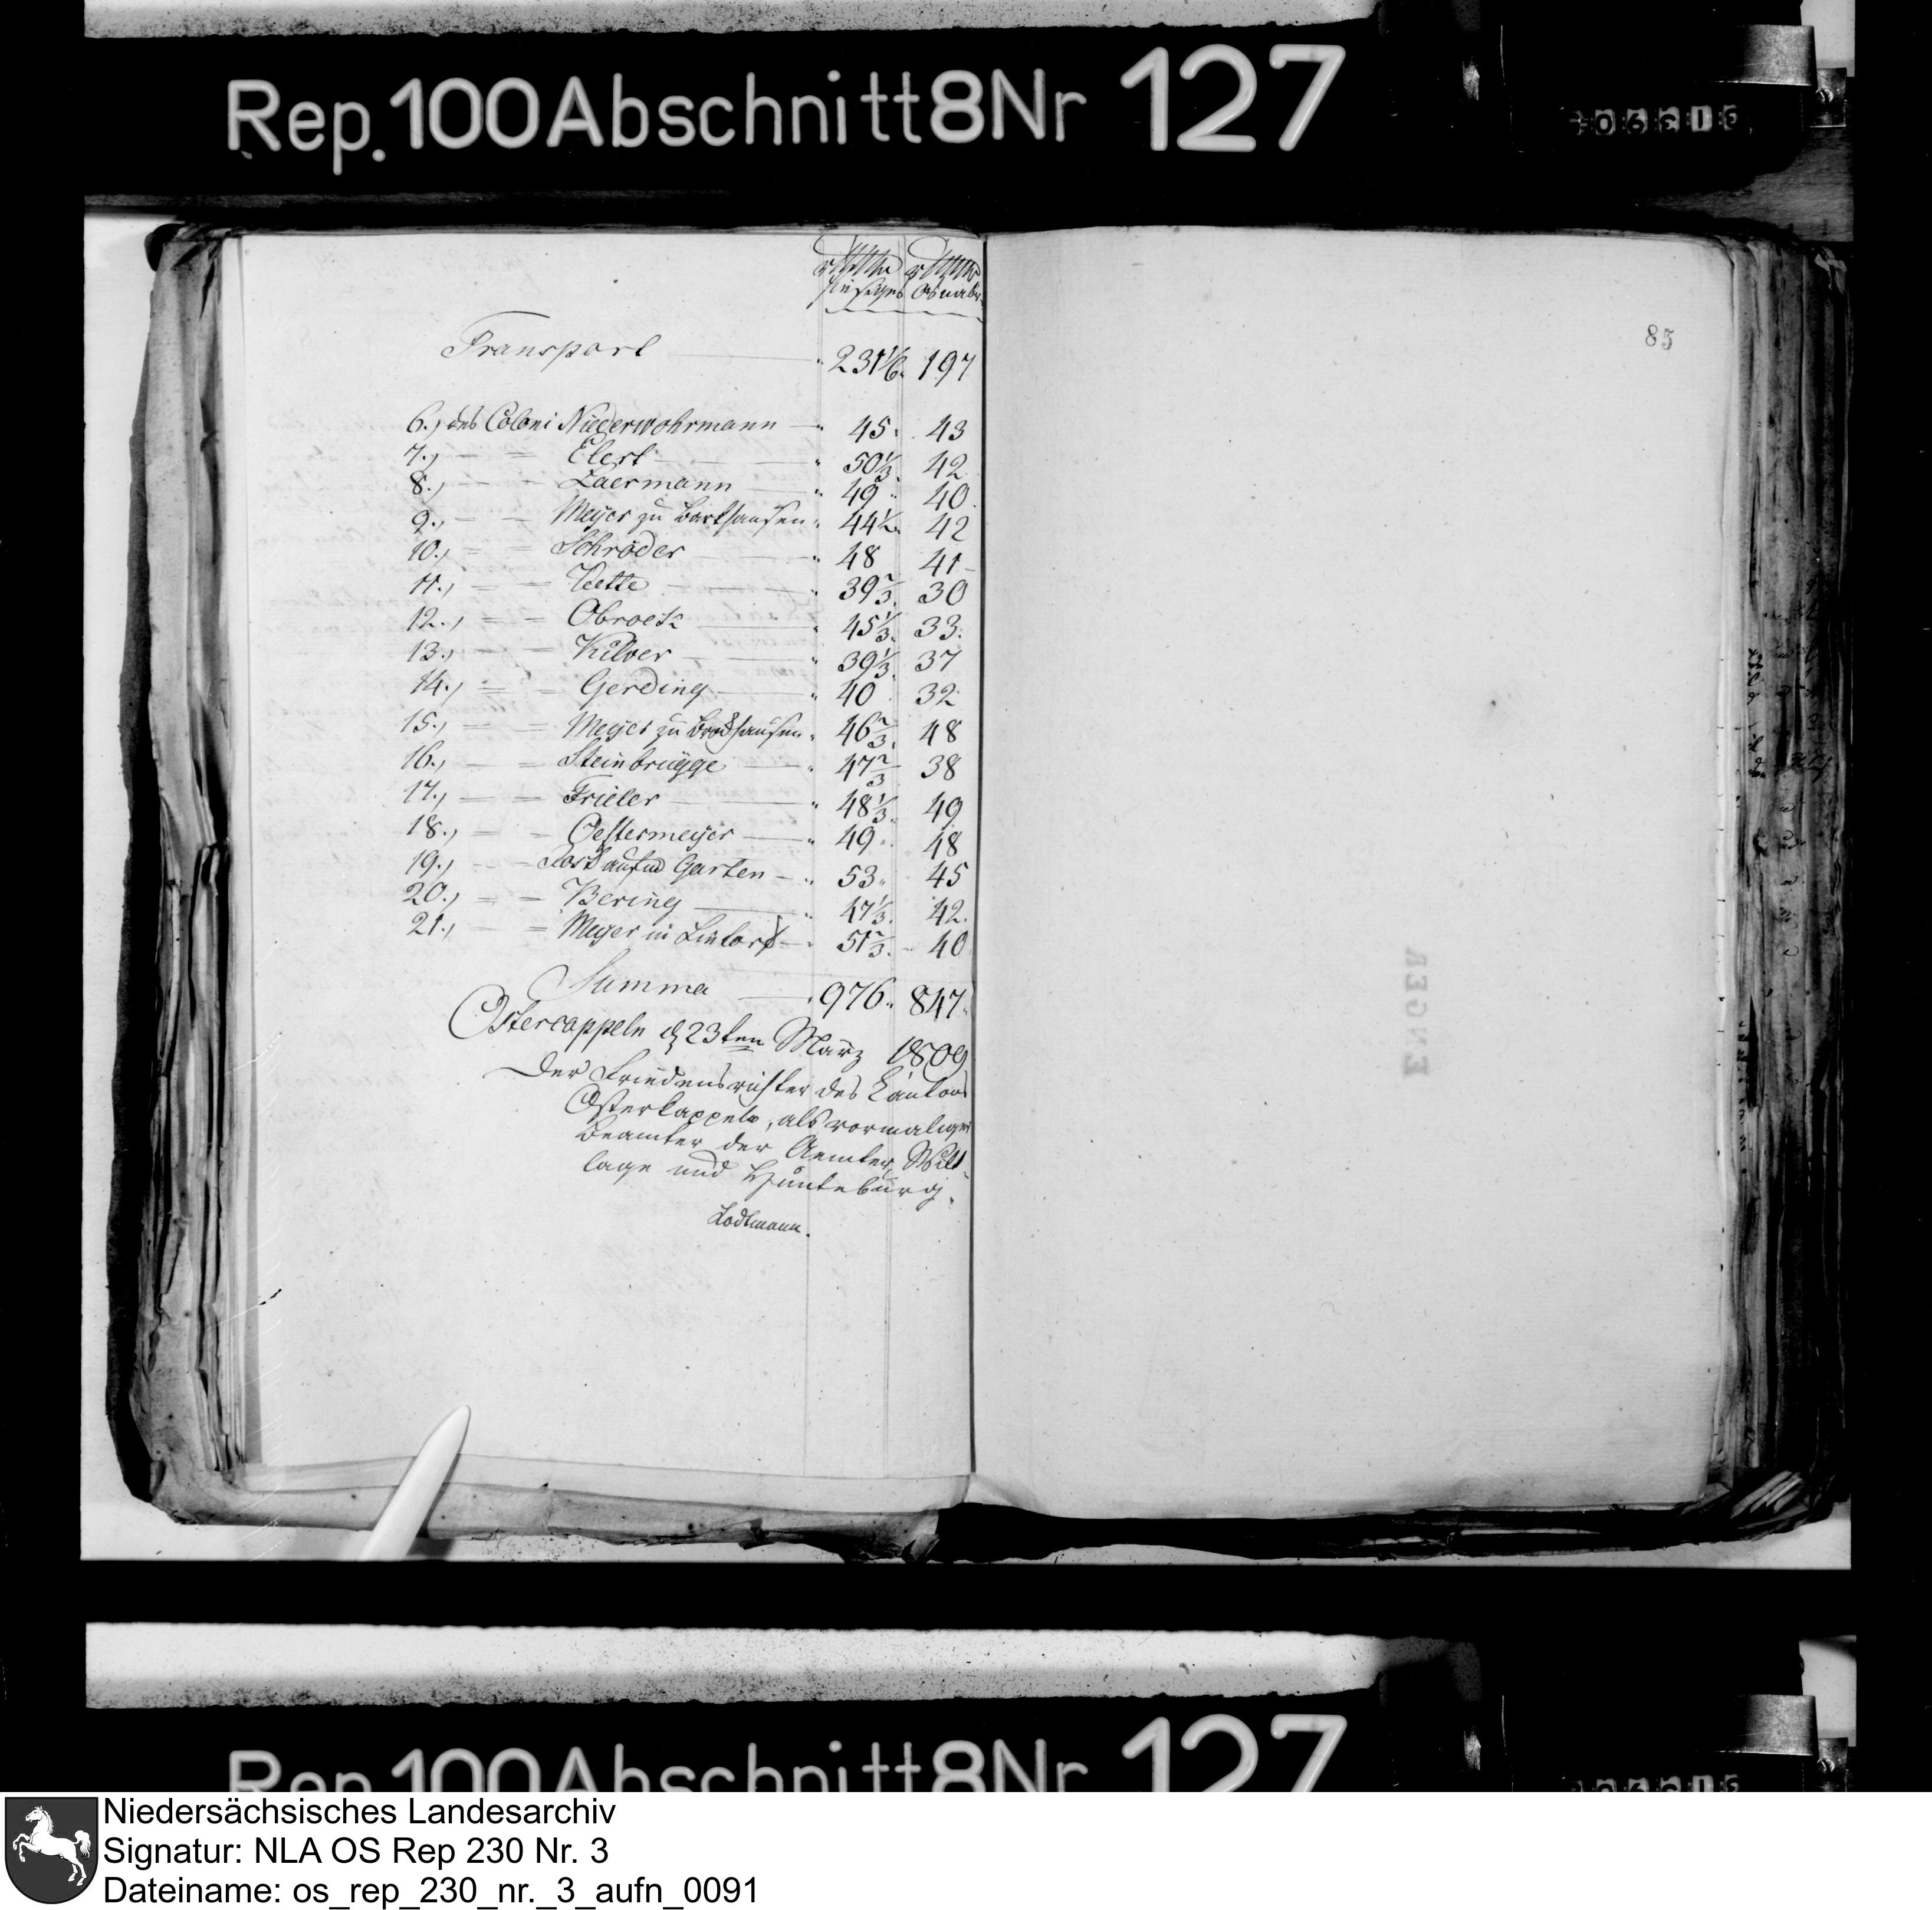 Rep. 100 Abschnitt 8 Nr 127
hiesiges Osnabr.
Transport 231 1/6. 197
85
6., des Coloni Niederwohrmann — 45. 43
7., — = Elert — 50 1/3. 42
8., — = Laermann — 49. 40
9., — = Meyer zu Barkhausen 44 1/2. 42
10., = = Schröder — 48 41
11., = = Vette — 39 2/3. 30
12., = = Obrock — 45 1/3. 33.
13., — = Kilver — 39 1/3. 37
14., = = Gerding — 40 32
15., = = Meyer zu Brockhausen 46 2/3. 48
16., — = Steinbrügge — 47 2/3 38
17., = = Frieler — 48 1/3. 49
18., = = Oestermeyer — 49. 48
19., — - Kost aufm Garten — 53. 45
20., = = Bering — 47 1/3. 42.
21., — = Meyer in Lintorf — 51 2/3. 40
Summa — 976. 847.
Ostercappeln d 23ten März 1809
Der Friedensrichter des Cantons
Osterkappeln, als vormaliger
Beamter der Aemter Witt-
lage und Hunteburg.
Lodtmann.
ENGER
Rep. 100 Abschnitt 8 Nr 127
Niedersächsisches Landesarchiv
Signatur: NLA OS Rep 230 Nr. 3
Dateiname: os_rep_230_nr._3_aufn_0091